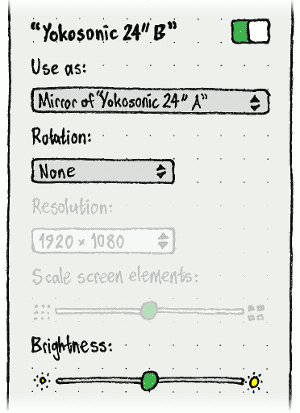 “Yokosonic 24” B”
Use as:
Mirror of “Yokosonic 24” A”
Rotation:
None
Resolution:
1920 × 1080
Scale screen elements:
Brightness: